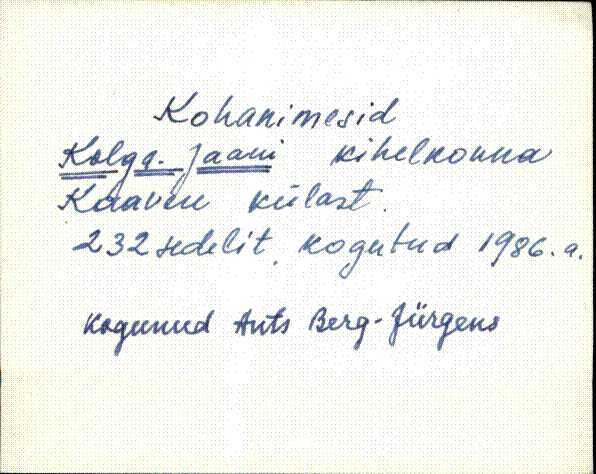 Kohanimesid
Kolga-Jaani kihelkonna
Kaavere külast.
232 sedelit, kogutud 1986. a.
Kogunud Ants Berg-Jürgens